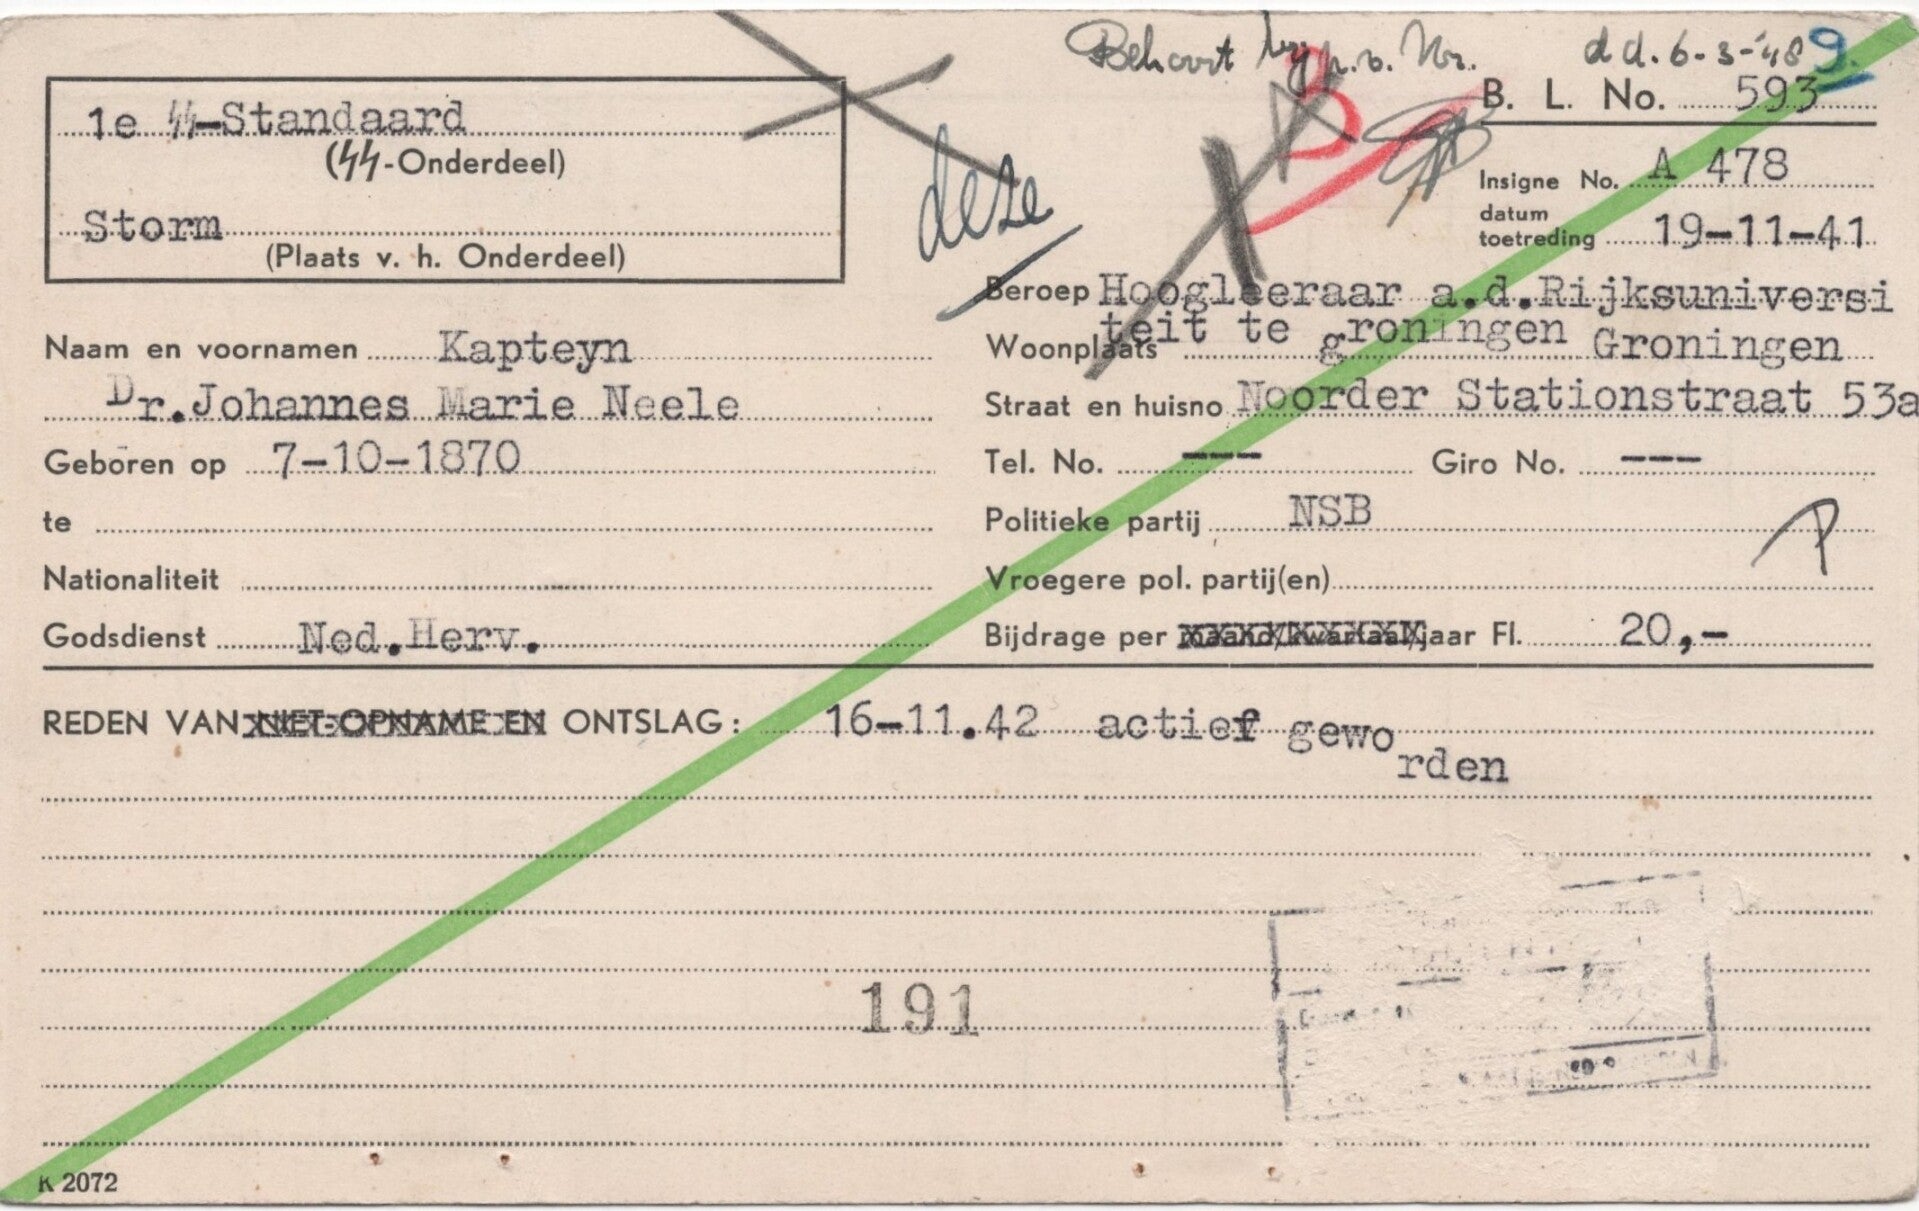 Behoort bij p.v. Nr. dd. 6-3-'48 9.
B. L. No. 593
1e SS-Standaard
(SS-Onderdeel)
Storm
(Plaats v. h. Onderdeel)
deze
B
Insigne No. A 478
datum
toetreding 19-11-41
Beroep Hoogleeraar a.d.Rijksuniversi
teit te groningen
Woonplaats Groningen
Naam en voornamen Kapteyn
Dr.Johannes Marie Neele
Straat en huisno Noorder Stationstraat 53a
Geboren op 7-10-1870
Tel. No. --- Giro No. ---
te
Politieke partij NSB
P
Nationaliteit
Vroegere pol. partij(en)
Godsdienst Ned.Herv.
Bijdrage per maand/kwartaal/jaar Fl. 20,-
REDEN VAN NIET-OPNAME EN ONTSLAG: 16-11.42 actief gewo
rden
191
K 2072